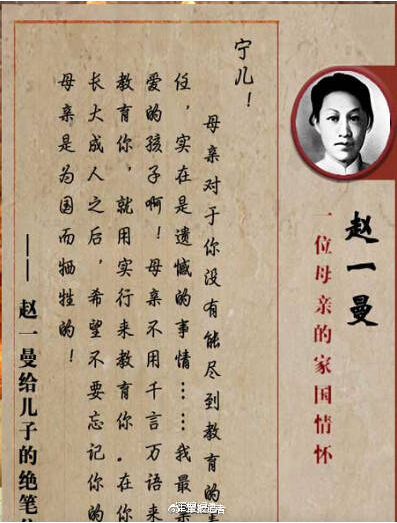 赵一曼
一位母亲的家国情怀
宁儿！
母亲对于你没有能尽到教育的责
任，实在是遗憾的事情……我最亲
爱的孩子啊！母亲不用千言万语来
教育你，就用实行来教育你。在你
长大成人之后，希望不要忘记你的
母亲是为国而牺牲的！
——赵一曼给儿子的绝笔